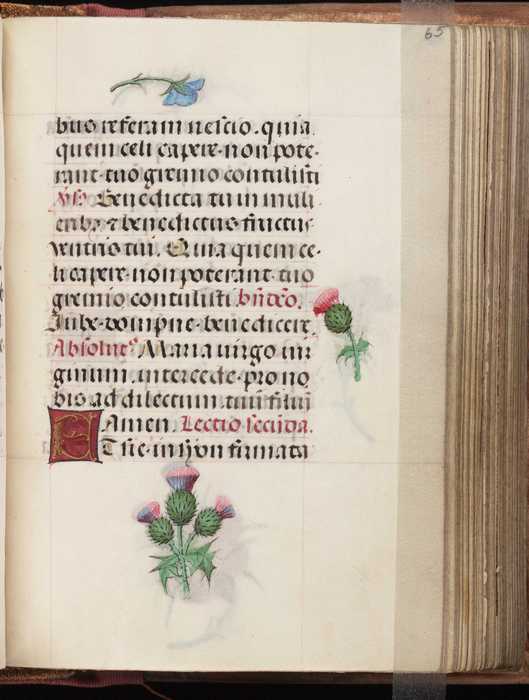 65
bus referam nescio. quia
quem celi capere. non pote-
rant. tuo gremio contulisti
Benedicta tu in muli
eribꝫ ⁊ benedictus fructus
ventris tui. Quia quem ce-
li capere. non poterant. tuo
gremio contulisti.
Iube. dompne. benedicere.
Maria uirgo uir
ginum. intercede. pro no
bis ad dilectum. tuū filiū
Amen. Lectio secūda.
ET sic. in syon firmata